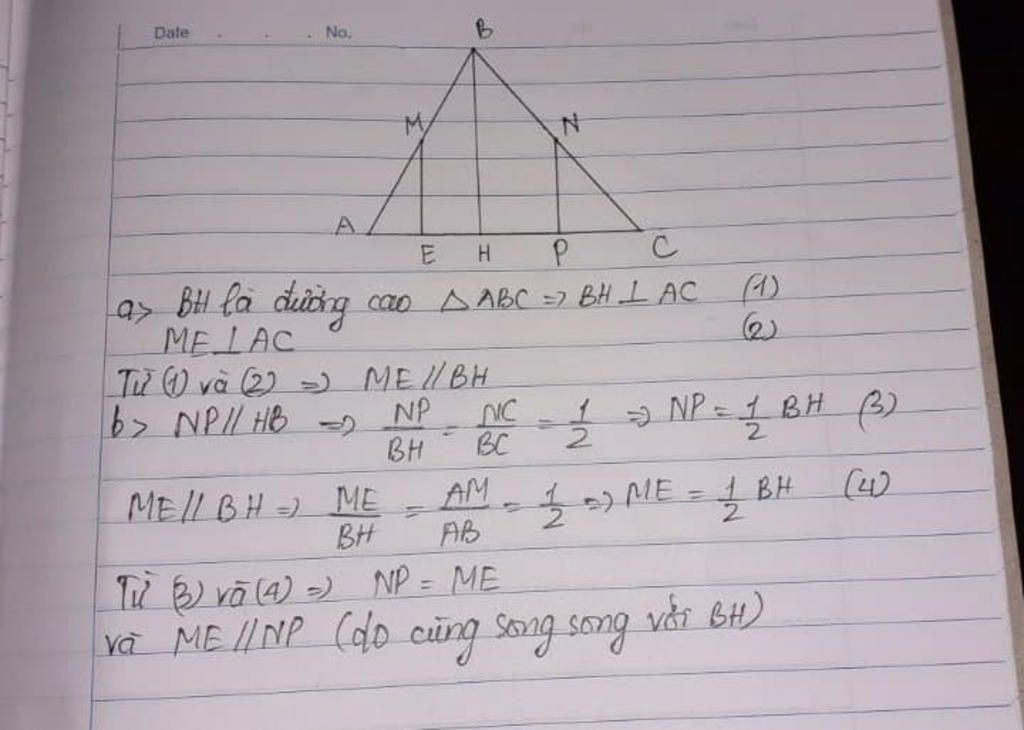 Date . . . No.
B
M N
A E H P C
a> BH là đường cao △ ABC => BH ⊥ AC (1)
ME ⊥ AC (2)
Từ (1) và (2) => ME // BH
b> NP // HB => NP/BH = NC/BC = 1/2 => NP = 1/2 BH (3)
ME // BH => ME/BH = AM/AB = 1/2 => ME = 1/2 BH (4)
Từ (3) và (4) => NP = ME
và ME // NP (do cùng song song với BH)